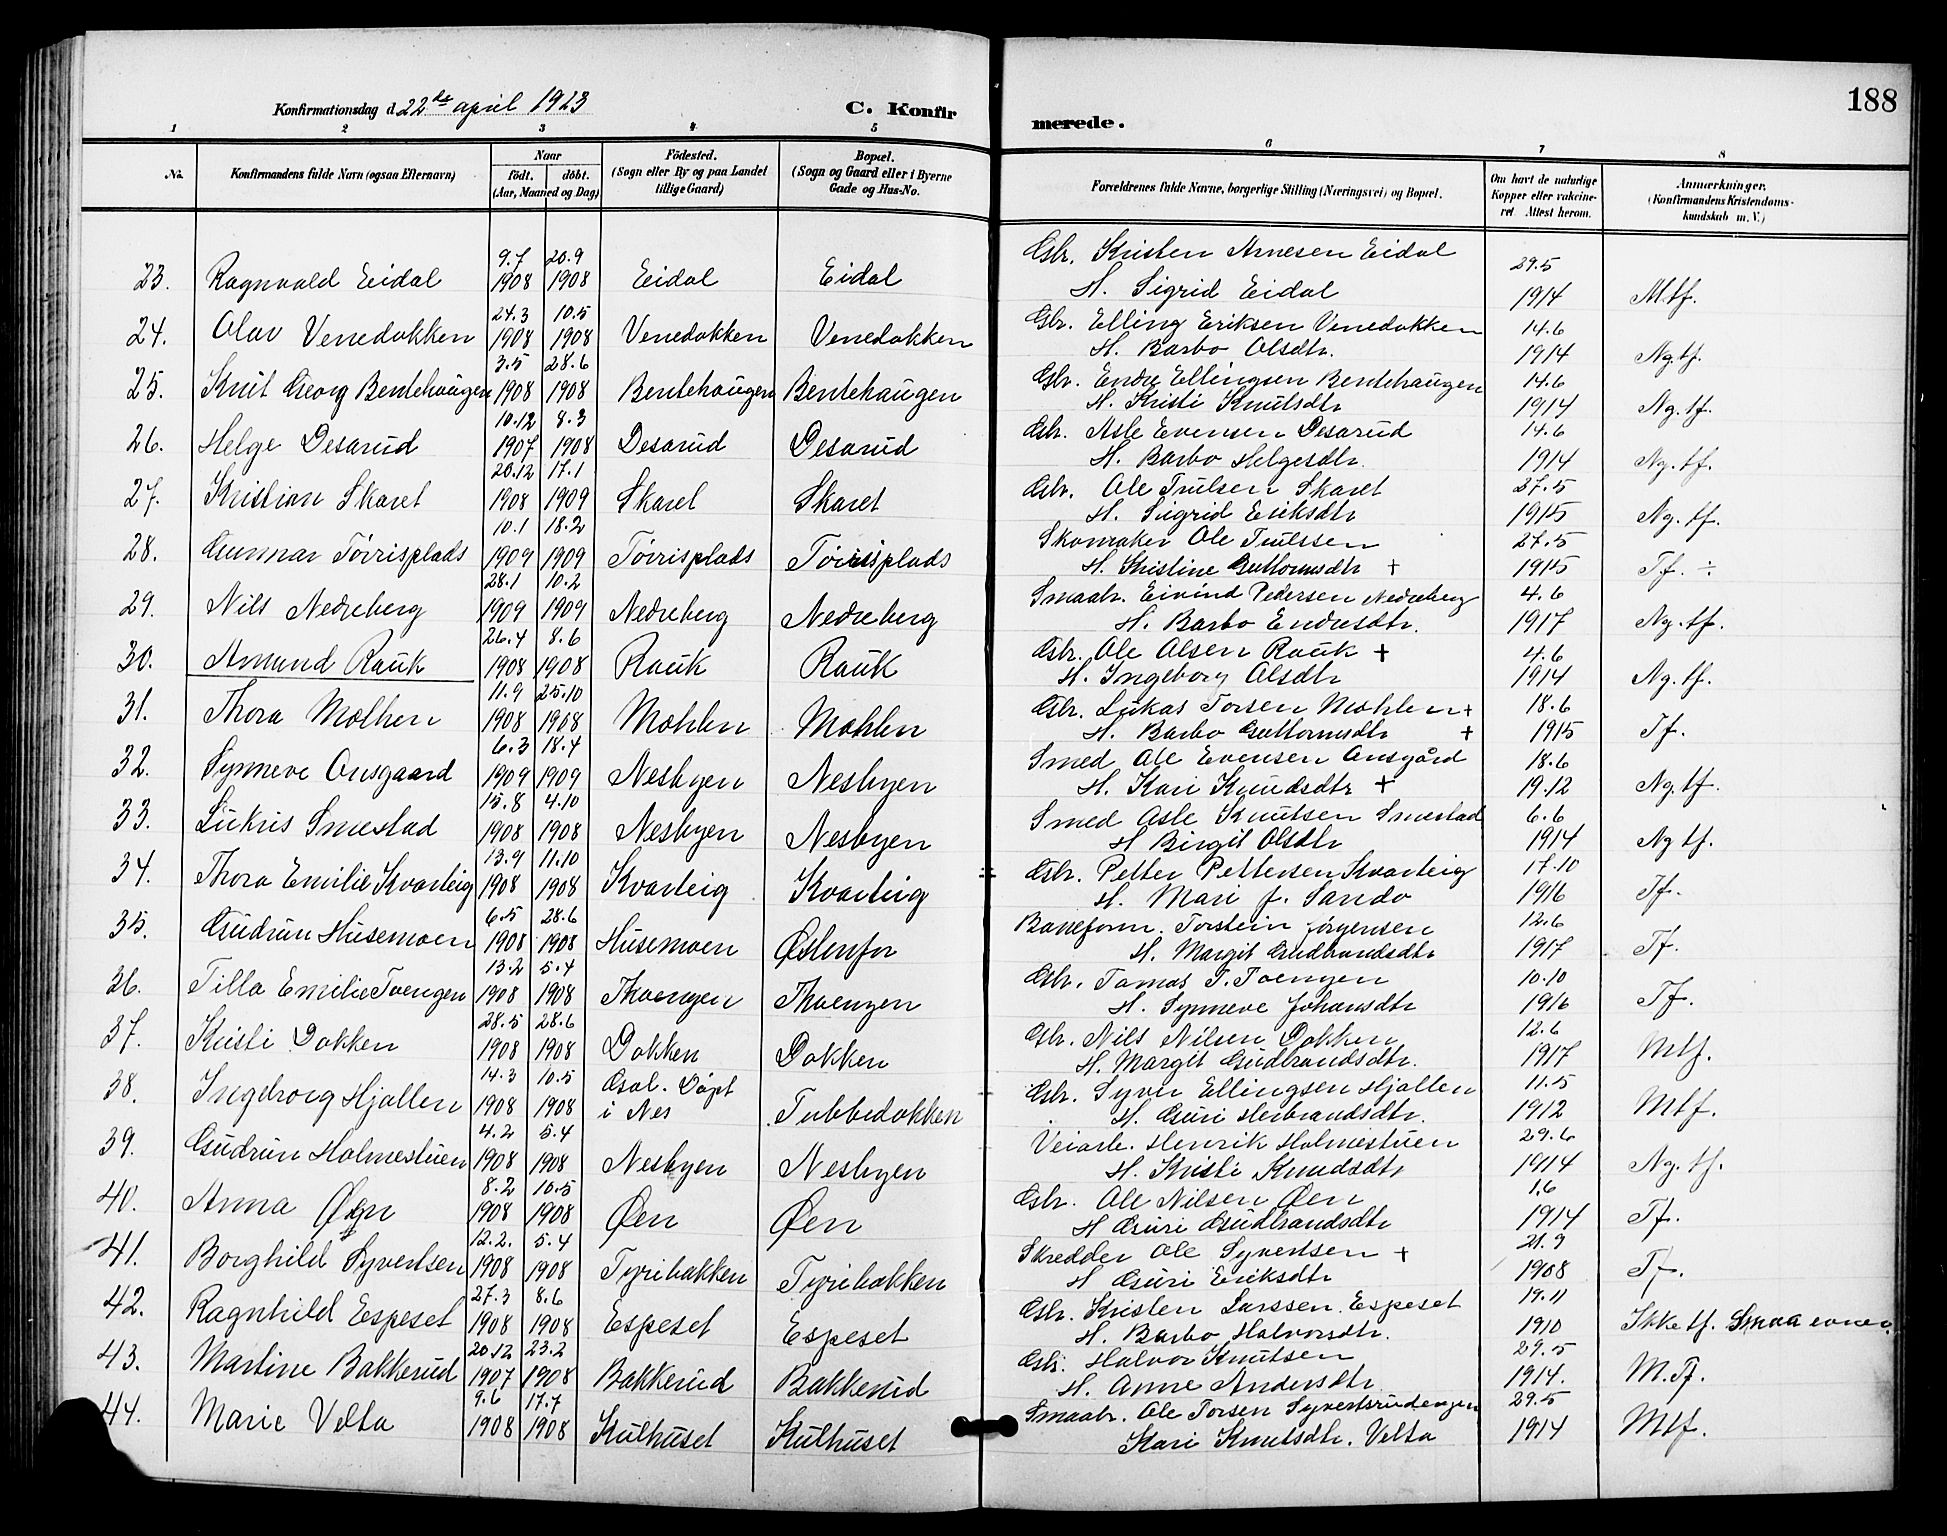 188
Konfirmationsdag d. 22de april 1923 C. Konfirmerede.
1 2 3 4 5 6 7 8
No. Konfirmandens fulde Navn (ogsaa Efternavn) Naar födt. döbt. (Aar, Maaned og Dag) Födested. (Sogn eller By og paa Landet tillige Gaard) Bopæl. (Sogn og Gaard eller i Byerne Gade og Hus-No. Forældrenes fulde Navne, borgerlige Stilling (Næringsvei) og Bopæl. Om havt de naturlige Kopper eller vakcineret Attest herom. Anmærkninger. (Konfirmandens Kristendomskundskab m. V.)
9.7 20.9 Gbr. Kristen Arnesen Eidal 29.5
23. Ragnvald Eidal 1908 1908 Eidal Eidal H. Sigrid Eidal 1914 Mtf.
24.3 10.5 Gbr. Elling Eriksen Venedokken 14.6
24. Olav Venedokken 1908 1908 Venedokken Venedokken H. Barbo Olsdtr. 1914 Ng.tf.
3.5 28.6 Gbr. Endre Ellingsen Bentehaugen 14.6
25. Knut Georg Bentehaugen 1908 1908 Bentehaugen Bentehaugen H. Kristi Knutsdtr 1914 Ng.tf.
10.12 8.3 Gbr. Asle Evensen Desarud 14.6
26. Helge Desarud 1907 1908 Desarud Desarud H. Barbo Helgesdtr. 1914 Ng.tf.
20.12 17.1 Gbr. Ole Trulsen Skaret 27.5
27. Kristian Skaret 1908 1909 Skaret Skaret H. Sigrid Eriksdtr 1915 Ng.tf.
10.1 18.2 Skomaker Ole Trulssen 27.5
28. Gunnar Törrisplads 1909 1909 Törrisplads Törrisplads H. Kristine Guttormsdtr + 1915 Tf. ÷
28.1 10.2 Smaabr. Eivind Pedersen Nedreberg 4.6
29. Nils Nedreberg 1909 1909 Nedreberg Nedreberg H. Barbo Endresdtr. 1917 Ng.tf.
26.4 8.6 Gbr. Ole Olsen Rauk + 4.6
30. Amund Rauk 1908 1908 Rauk Rauk H. Ingeborg Olsdtr 1914 Ng.tf.
11.9 25.10 Gbr. Lukas Torsen Mohlen + 18.6
31. Thora Mølhen 1908 1908 Mohlen Mohlen H. Barbo Guttormsdtr + 1915 Tf.
6.3 18.4 Smed Ole Evensen Ansgård 18.6
32. Synneve Ansgaard 1909 1909 Nesbyen Nesbyen H. Kari Knudsdtr + 1912 Ng.tf.
15.8 4.10 Smed Asle Knutsen Smestad 6.6
33. Lukris Smestad 1908 1908 Nesbyen Nesbyen H Birgit Olsdtr 1914 Ng tf.
13.9 11.10 Gbr. Petter Pettersen Kvarteig 17.10
34. Thora Emilie Kvarteig 1908 1908 Kvarteig Kvarteig H. Mari J. Sando 1916 Tf.
6.5 28.6 Baneform. Torstein Jörgensen 12.6
35. Gudrun Husemoen 1908 1908 Husemoen Østenfor H. Margit Gudbrandsdtr 1917 Tf.
13.2 5.4 Gbr. Tomas T. Toengen 10.10
36. Tilla Emilie Toengen 1908 1908 Thoengen Thoengen H. Synneve Johansdtr 1916 Tf.
28.5 28.6 Gbr. Nils Nilsen Dokken 12.6
37. Kristi Dokken 1908 1908 Dokken Dokken H. Margit Gudbrandsdtr. 1917 Mtf.
14.3 10.5 Gol. Döpt Gbr. Syver Ellingsen Hjallen 11.5
38. Ingeborg Hjallen 1908 1908 i Nes Tubbedokken H. Guri Herbrandsdtr. 1912 Mtf.
4.2 5.4 Veiarb. Henrik Holmestuen 29.6
39. Gudrun Holmestuen 1908 1908 Nesbyen Nesbyen H. Kristi Knudsdtr 1914 Ng.tf.
8.2 10.5 Gbr. Ole Nilsen Øen 1.6
40. Anna Øen 1908 1908 Øen Øen H Guri Gudbrandsdtr 1914 Tf.
12.2. 5.4 Skredder Ole Syvertsen + 21.9
41. Borghild Syvertsen 1908 1908 Tyribakken Tyribakken H Guri Eriksdtr 1908 Tf.
27.3 8.6 Gbr. Kristen Larssen Espeset 19.11
42. Ragnhild Espeset 1908 1908 Espeset Espeset H. Barbo Halvorsdtr. 1910 Ikke tf. Smaa evner.
20.12 23.2 Gbr. Halvor Knutsen 29.5
43. Martine Bakkerud 1907 1908 Bakkerud Bakkerud H. Anne Andersdtr 1914. M.Tf.
9.6 17.7 Smaabr. Ole Torsen Syvertsrudengen 29.5
44. Marie Velta 1908 1908 Kulhuset Kulhuset Kari Knutsdtr. Velta 1914 Mtf.